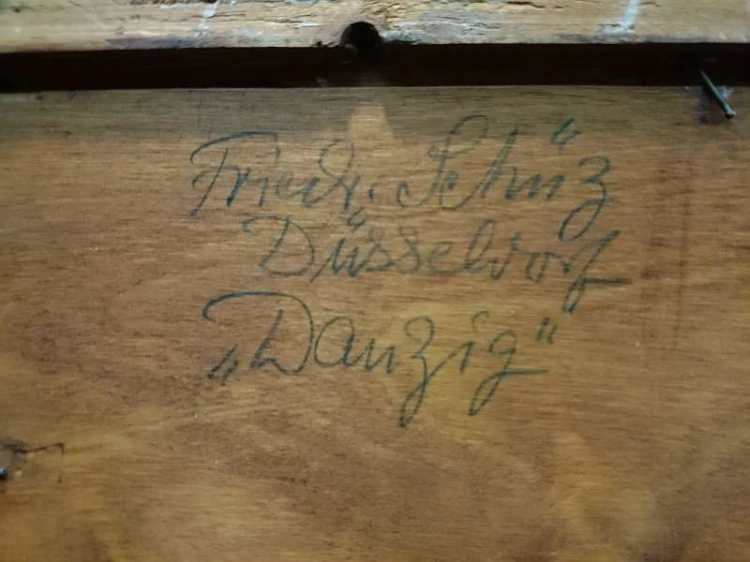 Friedr. Schüz
Düsseldorf
„Danzig“